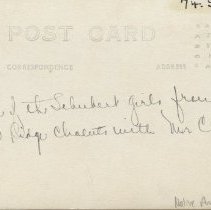 74.
POST CARD
CORRESPONDENCE
ADDRESS
of the Schubert girls from
Ridge Chalets with Mrs C
Native